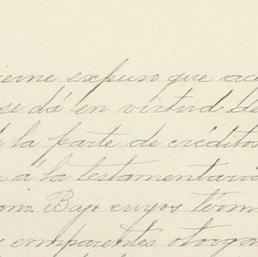 expuso que
se dá en virtud de
la parte de créditos
á la testamentaría
Bajo cuyos térm
comparentes otorga